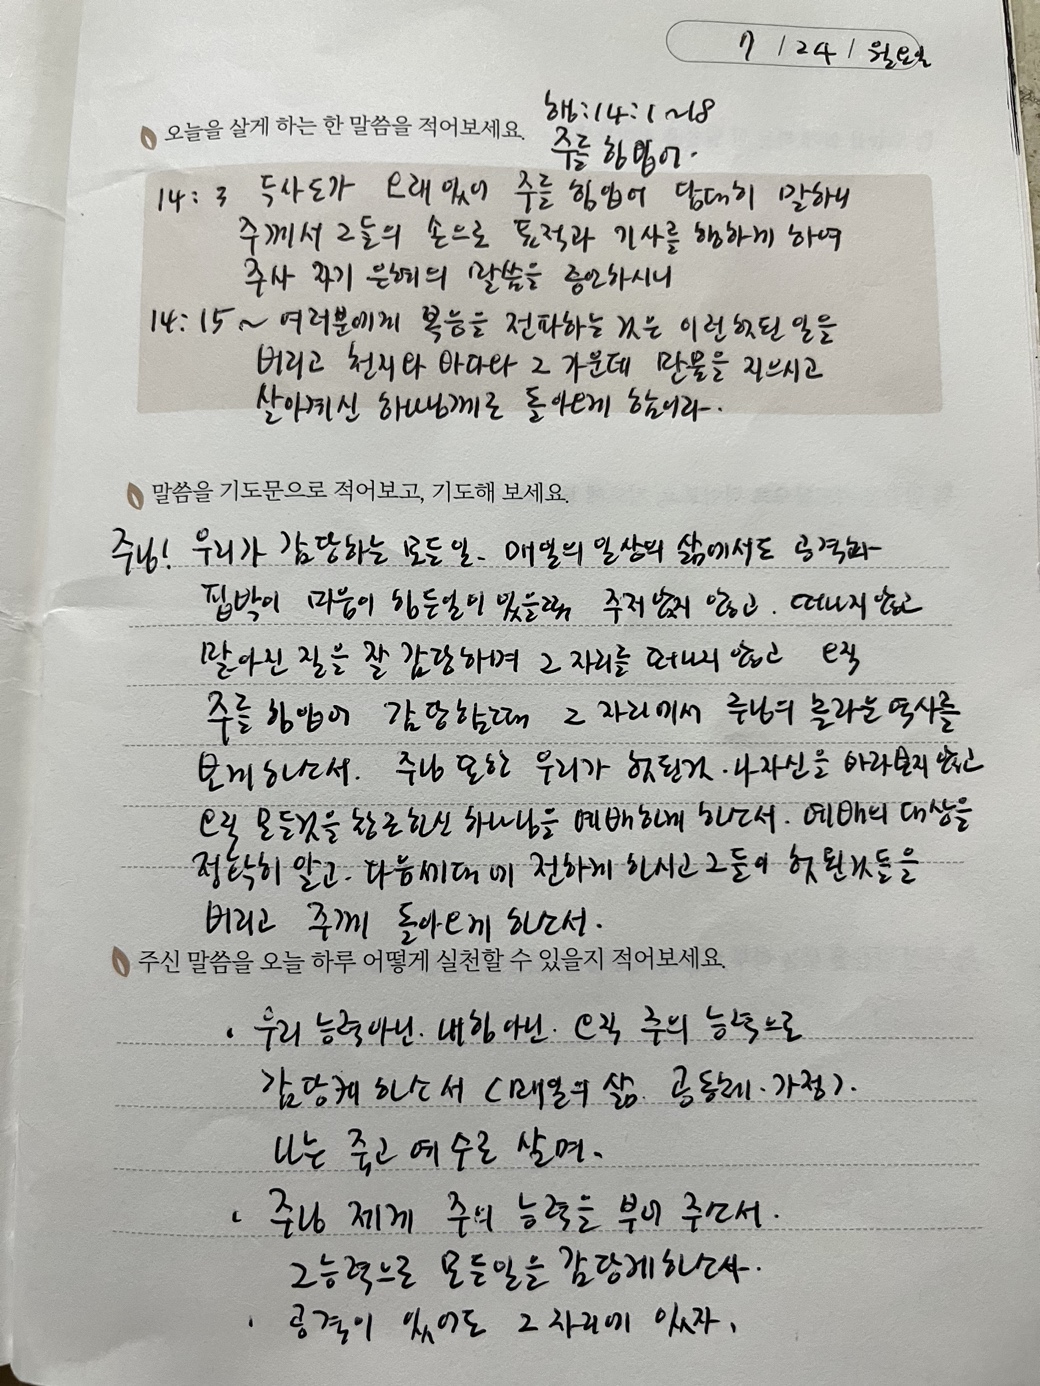 7 / 24 / 월요일
오늘을 살게 하는 한 말씀을 적어보세요.
행:14:1~18
주를 힘입어.
14:3 두사도가 오래있어 주를 힘입어 담대히 말하니
주께서 그들의 손으로 표적과 기사를 행하게 하여
주사 자기 은혜의 말씀을 증언하시니
14:15~ 여러분에게 복음을 전파하는 것은 이런헛된 일을
버리고 천지와 바다와 그 가운데 만물을 지으시고
살아계신 하나님께로 돌아오게 함이라.
말씀을 기도문으로 적어보고, 기도해 보세요.
주님! 우리가 감당하는 모든일. 매일의 일상의 삶에서도 공격과
핍박이 마음이 힘든일이 있을때 주저앉지 않고. 떠나지 않고
맡아진 일을 잘 감당하며 그 자리를 떠나지 않고 오직
주를 힘입어 감당할때 그 자리에서 주님의 놀라운 역사를
보게 하소서. 주님 또한 우리가 헛된것. 나자신을 바라보지 않고
오직 모든것을 창조하신 하나님을 예배하게 하소서. 예배의 대상을
정확히 알고. 다음세대에 전하게 하시고 그들이 헛된것들을
버리고 주께 돌아오게 하소서.
주신 말씀을 오늘 하루 어떻게 실천할 수 있을지 적어보세요.
· 우리 능력아닌. 내힘아닌. 오직 주의 능력으로
감당케 하소서 <매일의 삶. 공동체. 가정>.
나는 죽고 예수로 살며.
· 주님 제게 주의 능력을 부어 주소서.
그능력으로 모든일을 감당케하소서.
· 공격이 있어도 그 자리에 있자.